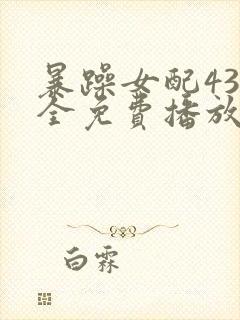 暴躁女配43
全免费播放
白霖